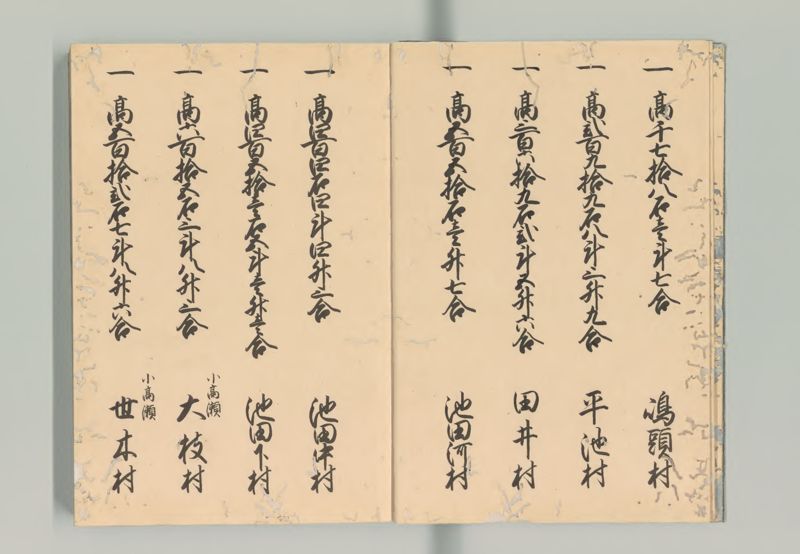 一 高千七拾八石壱斗七合 鴻頭村
一 高弐百九拾九石八斗三升九合 平池村
一 高三百六拾九石弐斗五升六合 田井村
一 高五百五拾石壱升七合 池田河村
一 高四百四石四斗四升三合 池田中村
一 高四百五拾壱石五斗壱升壱合 池田下村
一 高六百拾五石三斗八升三合 小高瀬 大枝村
一 高五百拾弐石七斗八升六合 小高瀬 世木村